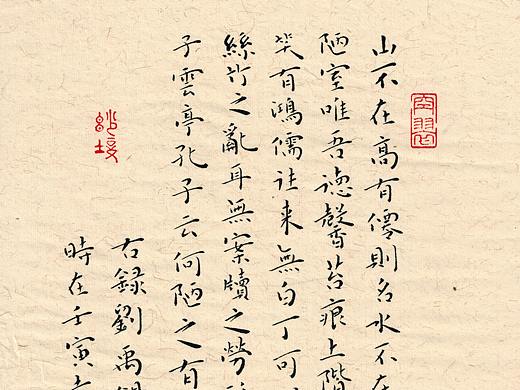 山不在高有僊則名水不在
陋室唯吾德馨苔痕上階
笑有鴻儒往来無白丁可
絲竹之亂耳無案牘之勞
子雲亭孔子云何陋之有
右錄劉禹錫
時在壬寅